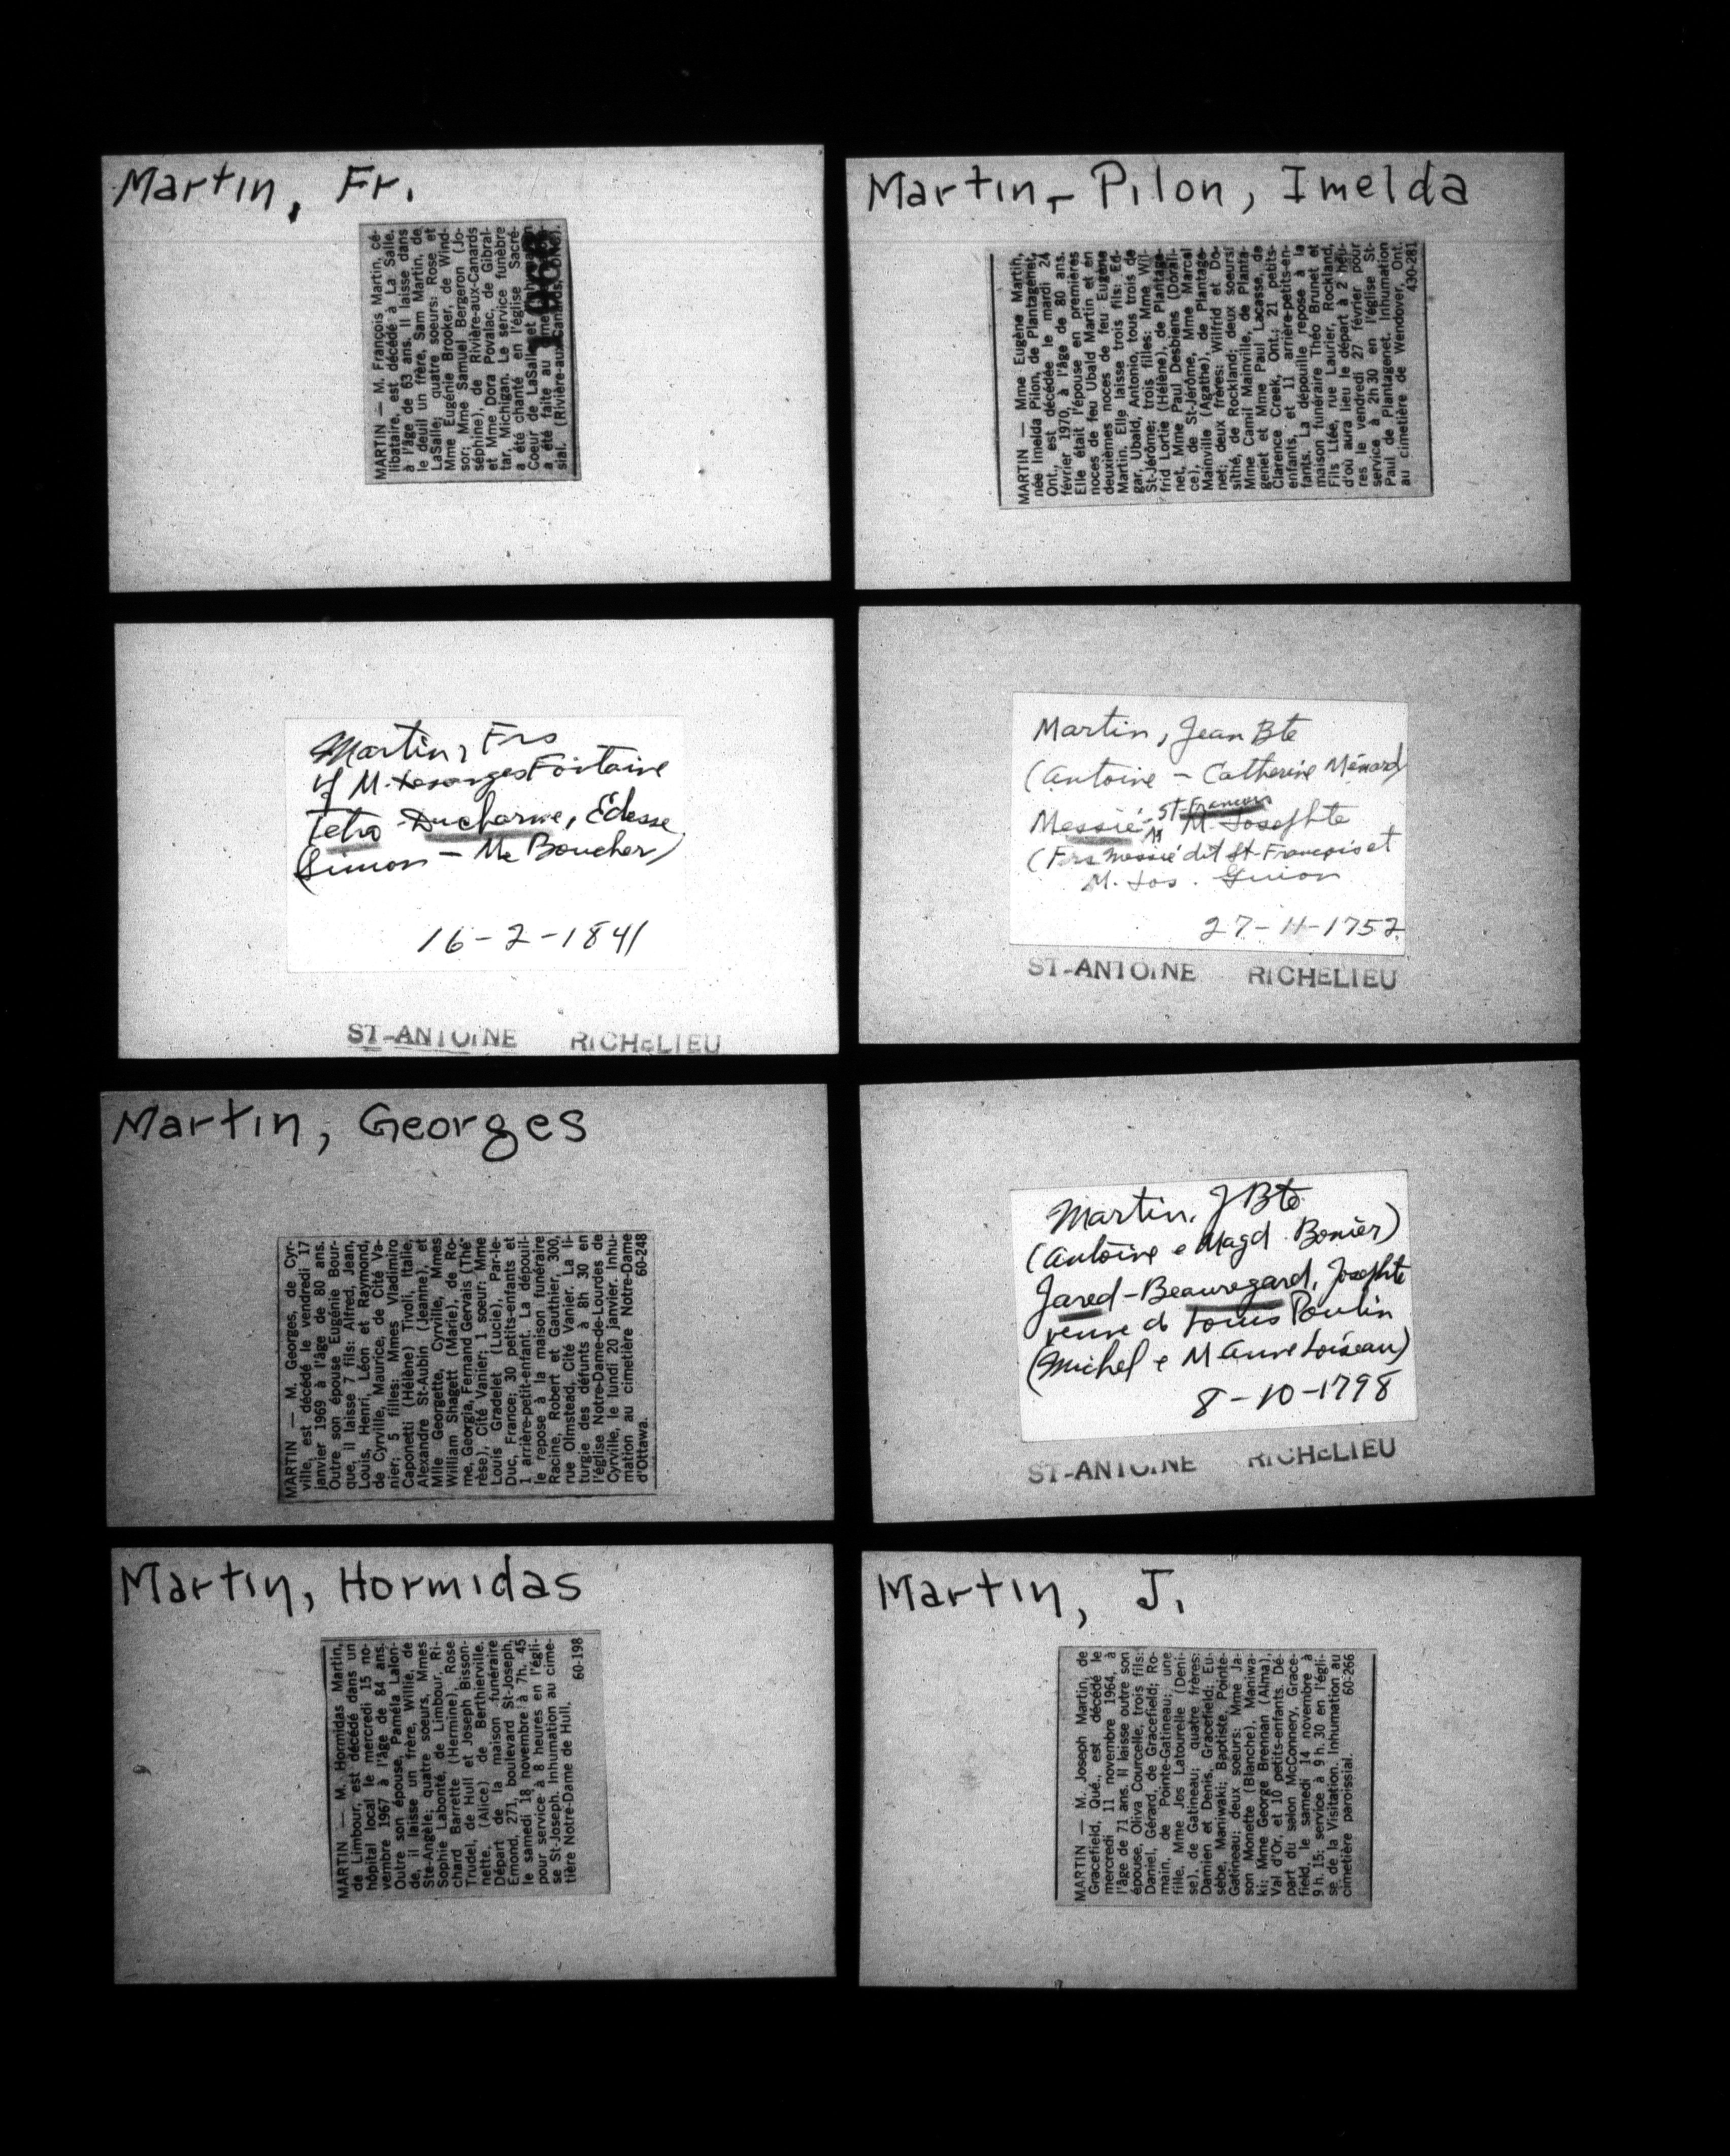 Martin, Fr.
MARTIN — M. François Martin, cé-
libataire, est décédé à La Salle,
à l'âge de 63 ans. Il laisse dans
le deuil un frère, Sam Martin, de
LaSalle; quatre soeurs: Rose et
Mme Eugénie Brooker, de Wind-
sor; Mme Samuel Bergeron (Jo-
séphine), de Rivière-aux-Canards
et Mme Dora Povalac, de Gibral-
tar, Michigan. Le service funèbre
a été chanté en l'église Sacré-
Coeur de LaSalle et
a été faite au
sial. (Rivière-aux-Canards,
Martin-Pilon, Imelda
MARTIN — Mme Eugène Martin,
née Imelda Pilon, de Plantagenet,
Ont., est décédée le mardi 24
février 1970, à l'âge de 80 ans.
Elle était l'épouse en premières
noces de feu Ubald Martin et en
deuxièmes noces de feu Eugène
Martin. Elle laisse trois fils: Ed-
gar, Ubald, Antonio, tous trois de
St-Jérôme; trois filles: Mme Wil-
frid Lortie (Hélène), de Plantage-
net, Mme Paul Desbiens (Dorali-
ce), de St-Jérôme, Mme Marcel
Mainville (Agathe), de Plantage-
net; deux frères: Wilfrid et Do-
sithé, de Rockland; deux soeurs:
Mme Camil Mainville, de Planta-
genet et Mme Paul Lacasse, de
Clarence Creek, Ont.; 21 petits-
enfants, et 11 arrière-petits-en-
fants. La dépouille repose à la
maison funéraire Théo Brunet et
Fils Ltée, rue Laurier, Rockland,
d'où aura lieu le départ à 2 heu-
res le vendredi 27 février pour
service à 2h30 en l'église St-
Paul de Plantagenet. Inhumation
au cimetière de Wendover, Ont.
430-281
Martin, Frs
vf M. Desanges Fontaine
Tetro-Ducharme, Édesse
(Simon - Me Boucher)
16-2-1841
ST-ANTOINE RICHELIEU
Martin, Jean Bte
(Antoine - Catherine Ménard)
Messié-St-François M. Josephte
(Frs Messié dit St-François et
M. Jos. Guion
27-11-1752
ST-ANTOINE RICHELIEU
Martin, Georges
MARTIN — M. Georges, de Cyr-
ville, est décédé le vendredi 17
janvier 1969 à l'âge de 80 ans.
Outre son épouse Eugénie Bour-
que, il laisse 7 fils: Alfred, Jean,
Louis, Henri, Léon et Raymond,
de Cyrville, Maurice, de Cité Va-
nier; 5 filles: Mmes Vladimiro
Caponetti (Hélène) Tivoli, Italie,
Alexandre St-Aubin (Jeanne), et
Mlle Georgette, Cyrville, Mmes
William Shagett (Marie), de Ro-
me, Georgia, Fernand Gervais (Thé-
rèse), Cité Vanier; 1 soeur: Mme
Louis Gradelet (Lucie), Par-le-
Duc, France; 30 petits-enfants et
1 arrière-petit-enfant. La dépouil-
le repose à la maison funéraire
Racine, Robert et Gauthier, 300,
rue Olmstead, Cité Vanier. La li-
turgie des défunts à 8h 30 en
l'église Notre-Dame-de-Lourdes de
Cyrville, le lundi 20 janvier. Inhu-
mation au cimetière Notre-Dame
d'Ottawa. 60-248
Martin, J Bte
(Antoine e Magd. Bonier)
Jared-Beauregard, Josephte
veuve d Louis Poulin
(Michel e M Anne Loiseau)
8-10-1798
ST-ANTOINE RICHELIEU
Martin, Hormidas
MARTIN — M. Hormidas Martin,
de Limbour, est décédé dans un
hôpital local le mercredi 15 no-
vembre 1967 à l'âge de 84 ans.
Outre son épouse, Paméla Lalon-
de, il laisse un frère, Willie, de
Ste-Angèle; quatre soeurs, Mmes
Sophie Labonté, de Limbour, Ri-
chard Barrette (Hermine), Rose
Trudel, de Hull et Joseph Bisson-
nette, (Alice) de Berthierville.
Départ de la maison funéraire
Emond, 271, boulevard St-Joseph,
le samedi 18 novembre à 7h. 45
pour service à 8 heures en l'égli-
se St-Joseph. Inhumation au cime-
tière Notre-Dame de Hull.
60-198
Martin, J.
MARTIN — M. Joseph Martin, de
Gracefield, Qué., est décédé le
mercredi 11 novembre 1964, à
l'âge de 71 ans. Il laisse outre son
épouse, Oliva Courcelle, trois fils:
Daniel, Gérard, de Gracefield; Ro-
main, de Pointe-Gatineau; une
fille, Mme Jos Latourelle (Deni-
se), de Gatineau; quatre frères:
Damien et Denis, Gracefield; Eu-
sèbe, Maniwaki; Baptiste, Pointe-
Gatineau; deux soeurs: Mme Ja-
son Monette (Blanche), Maniwa-
ki; Mme George Brennan (Alma),
Val d'Or, et 10 petits-enfants. Dé-
part du salon McConnery, Grace-
field, le samedi 14 novembre à
9 h. 15; service à 9 h. 30 en l'égli-
se de la Visitation. Inhumation au
cimetière paroissial. 60-266